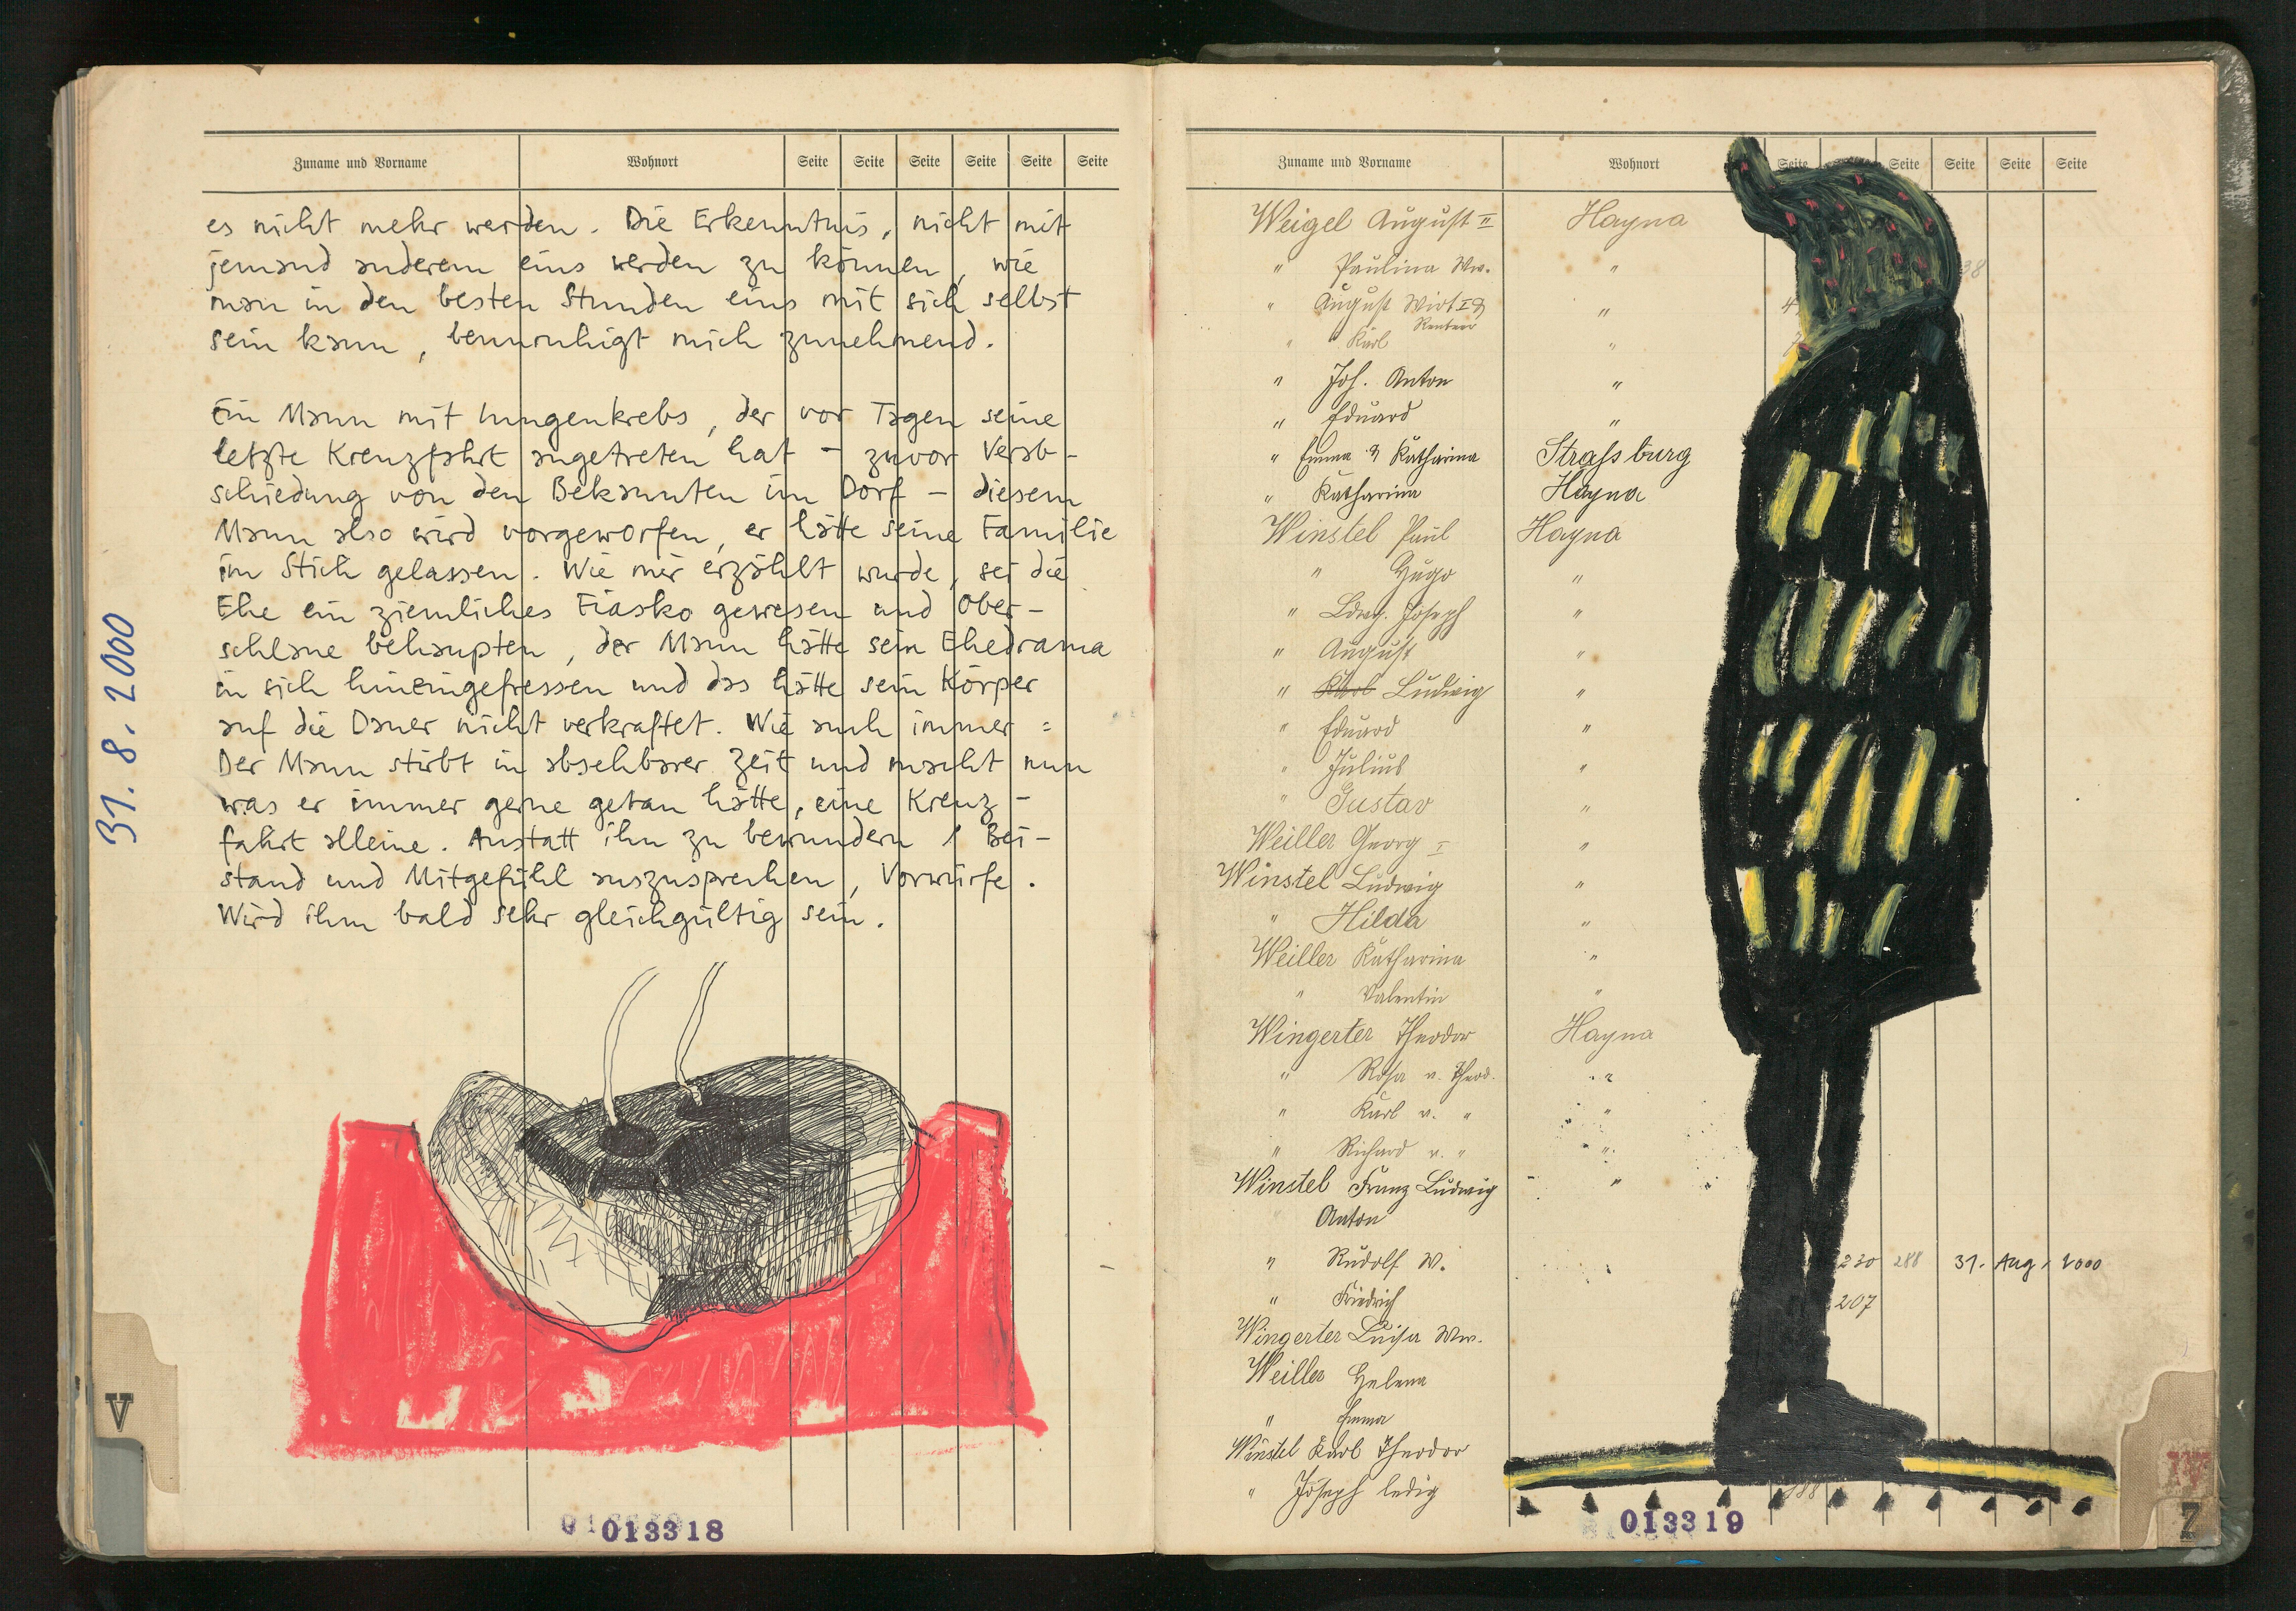 Zuname und Vorname Wohnort Seite Seite Seite Seite Seite Seite
es nicht mehr werden. Die Erkenntnis, nicht mit
jemand anderem eins werden zu können, wie
man in den besten Stunden eins mit sich selbst
sein kann, beunruhigt mich zunehmend.
Ein Mann mit Lungenkrebs, der vor Tagen seine
letzte Kreuzfahrt angetreten hat – zuvor Verab-
schiedung von den Bekannten im Dorf – diesem
Mann also wird vorgeworfen, er hätte seine Familie
im Stich gelassen. Wie mir erzählt wurde, sei die
Ehe ein ziemliches Fiasko gewesen und Ober-
schlaue behaupten, der Mann hätte sein Ehedrama
in sich hineingefressen und das hätte sein Körper
auf die Dauer nicht verkraftet. Wie auch immer:
Der Mann stirbt in absehbarer Zeit und macht nun
was er immer gerne getan hätte, eine Kreuz-
fahrt alleine. Anstatt ihn zu bewundern, Bei-
stand und Mitgefühl auszusprechen, Vorwürfe.
Wird ihm bald sehr gleichgültig sein.
31.8.2000
V
013318
Zuname und Vorname Wohnort Seite Seite Seite Seite Seite
Weigel August II Hayna
" Paulina Ww. " 38
" August Wirt I & "
Rentner
" Karl "
" Joh. Anton "
" Eduard "
" Emma & Katharina Strassburg
" Katharina Hayna
Winstel Paul Hayna
" Hugo "
" Ldwg. Joseph "
" August "
" Karl Ludwig "
" Eduard "
" Julius "
" Gustav "
Weiller Georg I "
Winstel Ludwig "
" Hilda "
Weiller Katharina "
" Valentin "
Wingerter Theodor Hayna
" Rosa v. Theod. "
" Karl v. " "
" Richard v. " "
Winstel Franz Ludwig "
Anton
" Rudolf W. 230 288 31. Aug. 2000
" Friedrich 207
Wingerter Luisa Ww.
Weiller Helena
" Emma
Winstel Karl Theodor
" Joseph ledig
013319
Z